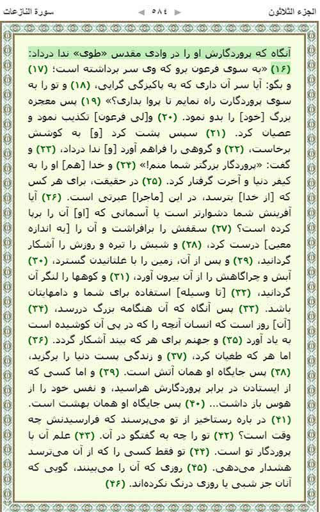 الجزء الثلاثون ◄ ٥٨٤ ► سورة النازعات
آنگاه که پروردگارش او را در وادی مقدس «طوی» ندا درداد:
(۱۶) «به سوی فرعون برو که وی سر برداشته است؛ (۱۷)
و بگو: آیا سر آن داری که به پاکیزگی گرایی، (۱۸) و تو را به
سوی پروردگارت راه نمایم تا پروا بداری؟» (۱۹) پس معجزه
بزرگ [خود] را بدو نمود. (۲۰) و[لی فرعون] تکذیب نمود و
عصیان کرد. (۲۱) سپس پشت کرد [و] به کوشش
برخاست، (۲۲) و گروهی را فراهم آورد [و] ندا درداد، (۲۳) و
گفت: «پروردگار بزرگتر شما منم!» (۲۴) و خدا [هم] او را به
کیفر دنیا و آخرت گرفتار کرد. (۲۵) در حقیقت، برای هر کس
که [از خدا] بترسد، در این [ماجرا] عبرتی است. (۲۶) آیا
آفرینش شما دشوارتر است یا آسمانی که [او] آن را برپا
کرده است؟ (۲۷) سقفش را برافراشت و آن را [به اندازه
معین] درست کرد، (۲۸) و شبش را تیره و روزش را آشکار
گردانید، (۲۹) و پس از آن، زمین را با غلتانیدن گسترد، (۳۰)
آبش و چراگاهش را از آن بیرون آورد، (۳۱) و کوهها را لنگر آن
گردانید، (۳۲) [تا وسیله] استفاده برای شما و دامهایتان
باشد. (۳۳) پس آنگاه که آن هنگامه بزرگ دررسد، (۳۴)
[آن] روز است که انسان آنچه را که در پی آن کوشیده است
به یاد آورد (۳۵) و جهنم برای هر که بیند آشکار گردد. (۳۶)
اما هر که طغیان کرد، (۳۷) و زندگی پست دنیا را برگزید،
(۳۸) پس جایگاه او همان آتش است. (۳۹) و اما کسی که
از ایستادن در برابر پروردگارش هراسید، و نفس خود را از
هوس باز داشت... (۴۰) پس جایگاه او همان بهشت است.
(۴۱) در باره رستاخیز از تو می‌پرسند که فرارسیدنش چه
وقت است؟ (۴۲) تو را چه به گفتگو در آن. (۴۳) علم آن با
پروردگار تو است. (۴۴) تو فقط کسی را که از آن می‌ترسد
هشدار می‌دهی. (۴۵) روزی که آن را می‌بینند، گویی که
آنان جز شبی یا روزی درنگ نکرده‌اند. (۴۶)